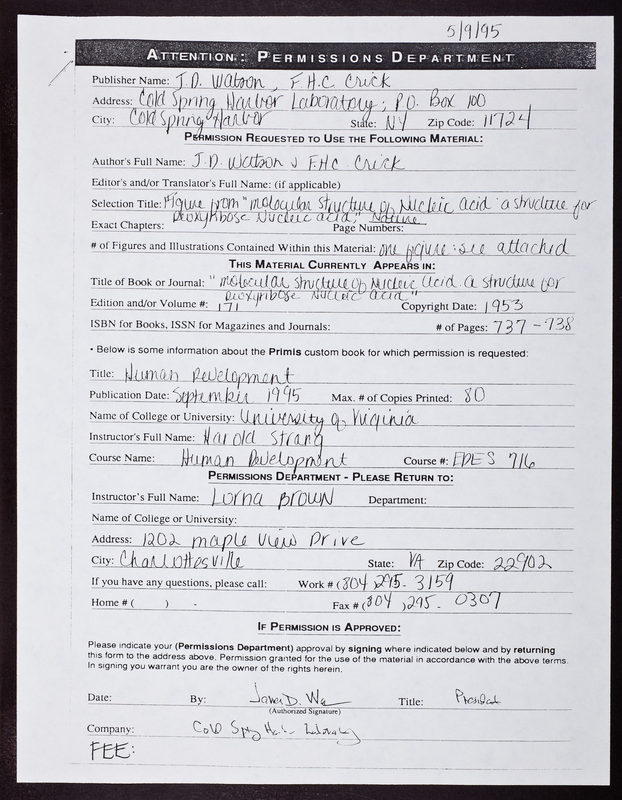 5/9/95
ATTENTION: PERMISSIONS DEPARTMENT
Publisher Name: J.D. Watson, F.H.C. Crick
Address: Cold Spring Harbor Laboratory; P.O. Box 100
City: Cold Spring Harbor State: NY Zip Code: 11724
PERMISSION REQUESTED TO USE THE FOLLOWING MATERIAL:
Author's Full Name: J.D. Watson & F.H.C. Crick
Editor's and/or Translator's Full Name: (if applicable)
Selection Title: Figure from "molecular structure of Nucleic acid: a structure for
Deoxyribose Nucleic acid," Nature
Exact Chapters: Page Numbers:
# of Figures and Illustrations Contained Within this Material: one figure: see attached
THIS MATERIAL CURRENTLY APPEARS IN:
Title of Book or Journal: "molecular structure of Nucleic acid. a structure for
Deoxyribose Nucleic acid"
Edition and/or Volume #: 171 Copyright Date: 1953
ISBN for Books, ISSN for Magazines and Journals: # of Pages: 737-738
• Below is some information about the Primis custom book for which permission is requested:
Title: Human Development
Publication Date: September 1995 Max. # of Copies Printed: 80
Name of College or University: University of Virginia
Instructor's Full Name: Harold Strang
Course Name: Human Development Course #: EDES 716
PERMISSIONS DEPARTMENT - PLEASE RETURN TO:
Instructor's Full Name: Lorna Brown Department:
Name of College or University:
Address: 1202 maple View Drive
City: Charlottesville State: VA Zip Code: 22902
If you have any questions, please call: Work # (804) 295-3159
Home # ( ) - Fax # (804) 295-0307
IF PERMISSION IS APPROVED:
Please indicate your (Permissions Department) approval by signing where indicated below and by returning
this form to the address above. Permission granted for the use of the material in accordance with the above terms.
In signing you warrant you are the owner of the rights herein.
Date: By: James D. Title: President
(Authorized Signature)
Company: Cold Spring Harbor Laboratory
FEE: